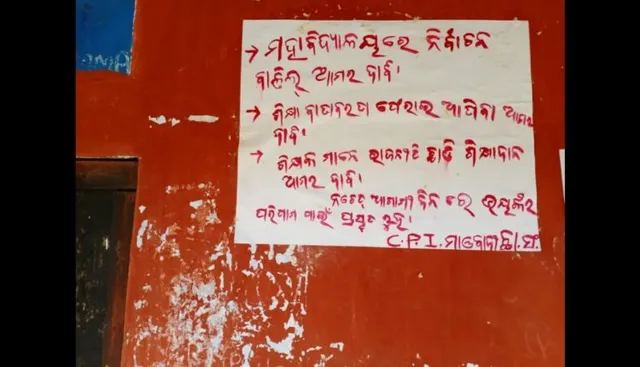 → ମହାବିଦ୍ୟାଳୟରେ ନିର୍ବାଚନ
ବାତିଲ୍ ଆମର ଦାବି।
→ ଶିକ୍ଷା ବାତାବରଣ ଫେରାଇ ଆଣିବା ଆମର
ଦାବି।
→ ଶିକ୍ଷକ ମାନେ ରାଜନୀତି ଛାଡ଼ି ଶିକ୍ଷାଦାନ
ଆମର ଦାବି।
ନଚେତ୍ ଆଗାମୀ ଦିନ ରେ
ପରିଣାମ ପାଇଁ ପ୍ରସ୍ତୁତ ହୁଅ।
C.P.I. ମାଓବାଦୀ